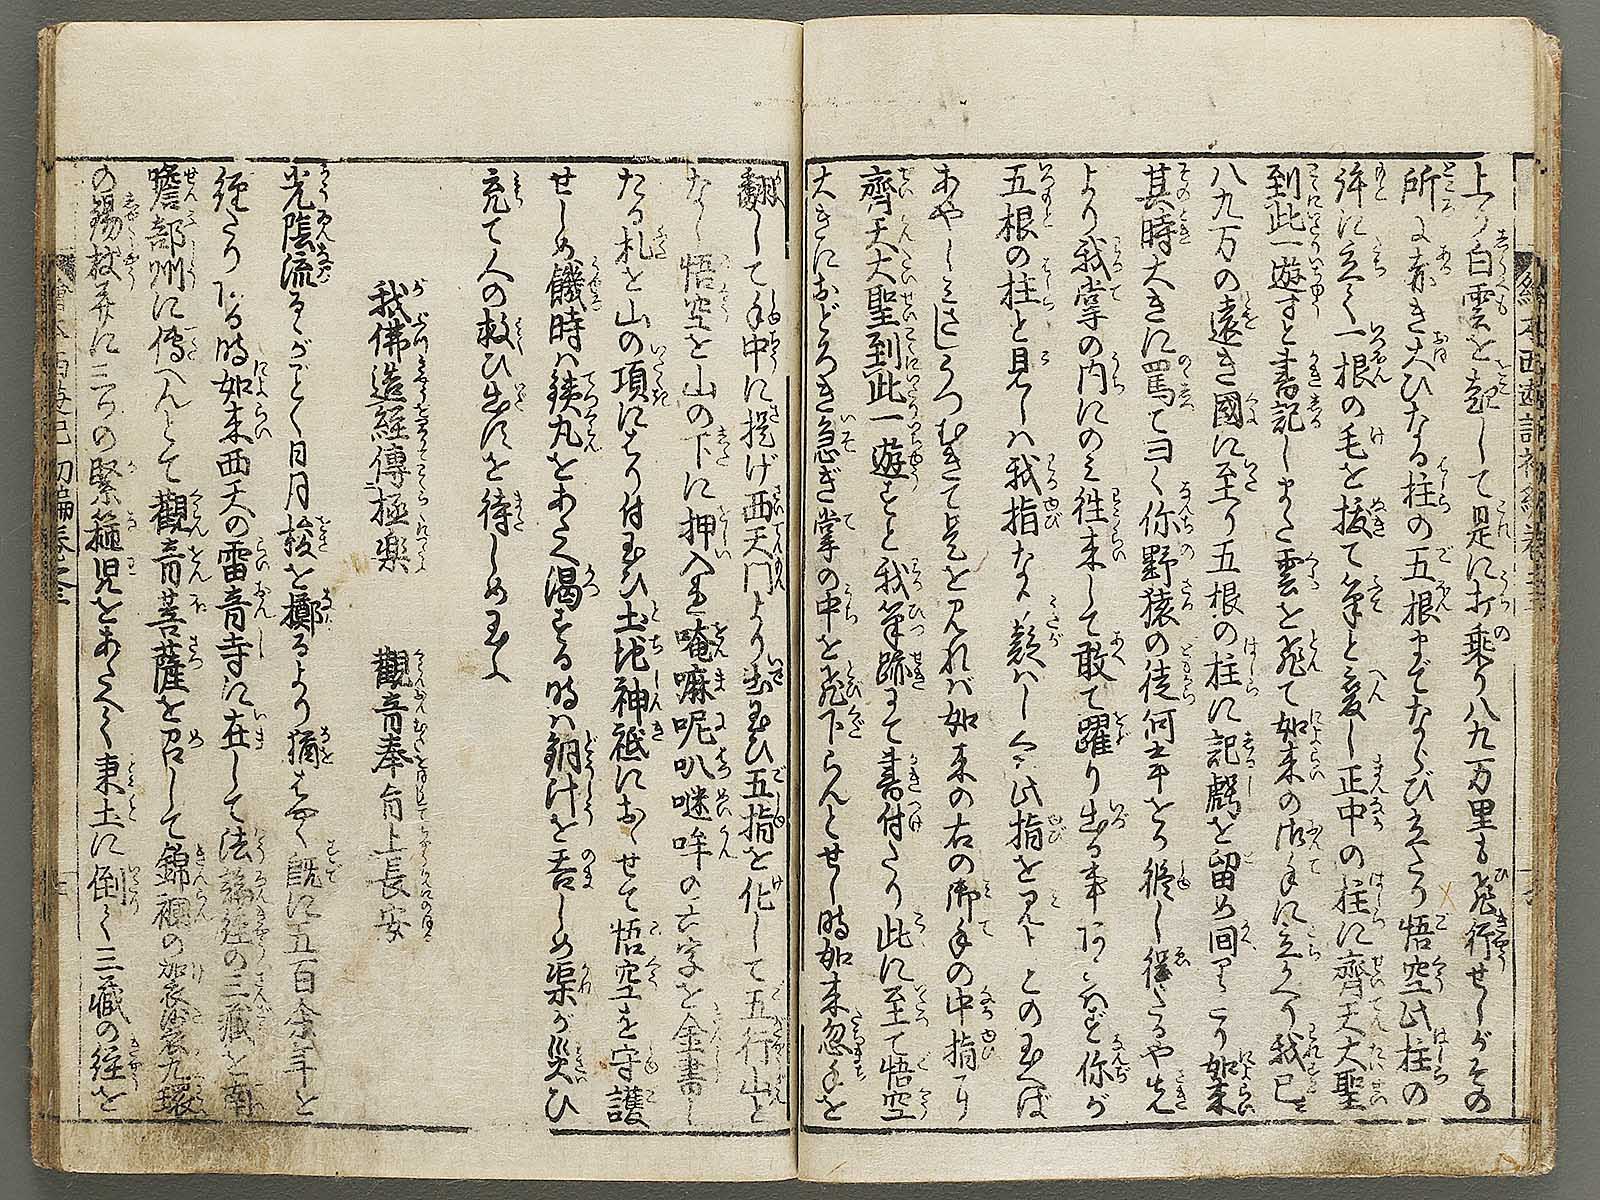 上り白雲を起して是に打乗り八九万里も飛行せしがその
所に赤き大ひなる柱の五根までならび立たり悟空此柱の
許に立て一根の毛を抜て筆と変し正中の柱に齊天大聖
到此一遊すと書記しまた雲を飛て如来の御手に立かへり我已に
八九万の遠き國に至り五根の柱に記號を留め回りたり如来
其時大きに罵て曰く你野猿の徒何五年をる後し催たるや先
より我掌の内にのミ徃来して敢て躍り出る事なし你が
五根の柱と見しハ我指なる顔ハし今此指を見よとの玉へば
あやしミさしうつむきて是を見れば如来の右の御手の中指に
齊天大聖到此一遊すと我筆跡にて書付たり此に至て悟空
大きにおどろき急ぎ掌の中を飛下らんとせし時如来忽手を
翻して手中に提げ西天門より出玉ひ五指を化して五行山と
なし悟空を山の下に押入て唵嘛呢叭𠺗吽の六字を金書し
たる札を山の頂にはり付玉ひ土地神祇におゝせて悟空を守護
せしめ饑時ハ鉄丸をあたへ渇する時ハ銅汁を呑しめ渠が災ひ
充て人の救ひ出にを待しめ玉ふ
我佛造經傳極楽　觀音奉旨上長安
光陰流るゝがごとく日月梭を擲るより猶はやく既に五百余年を
經たりける時如来西天の雷音寺に在して法論經の三藏を南
贍部州に傳へんとて觀音菩薩を召して錦襴の袈裟九環
の錫杖并に三ツの緊箍児をあたへて東土に倒て三藏の經を